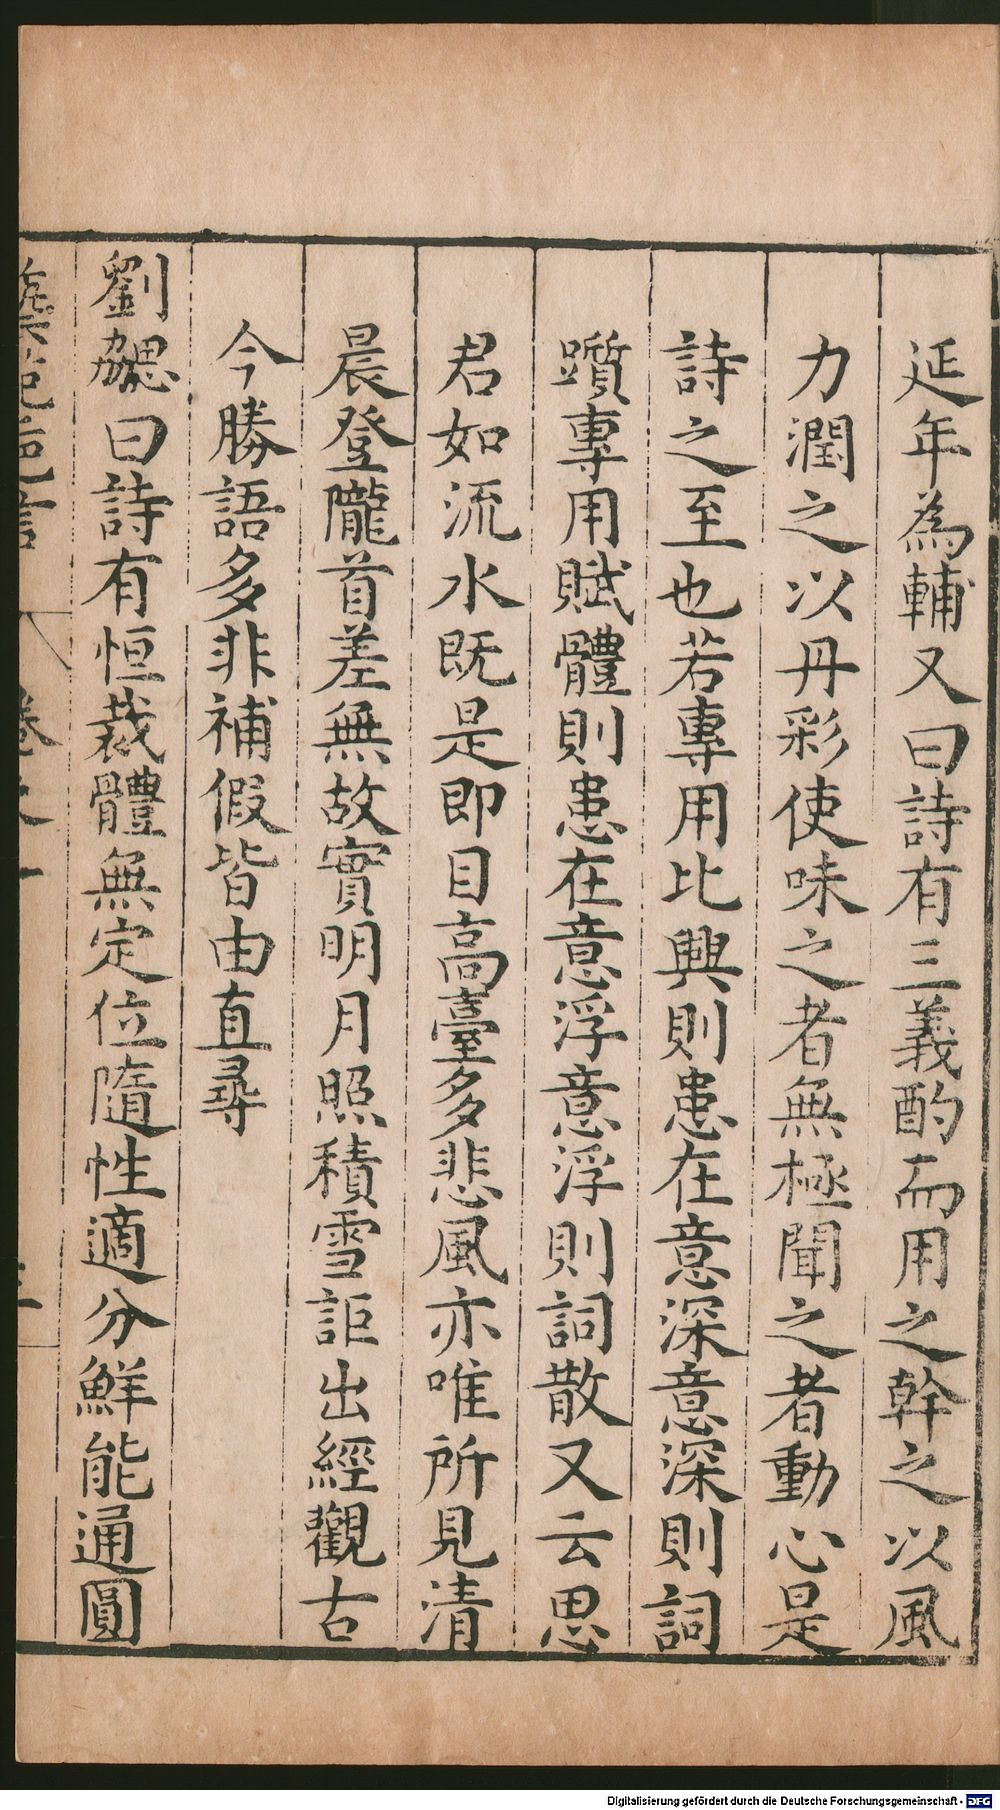 延年為輔又曰詩有三義酌而用之幹之以風
力潤之以丹彩使味之者無極聞之者動心是
詩之至也若專用比興則患在意深意深則詞
躓專用賦體則患在意浮意浮則詞散又云思
君如流水既是即目高臺多悲風亦唯所見清
晨登隴首羌無故實明月照積雪詎出經觀古
今勝語多非補假皆由直尋
劉勰曰詩有恒裁體無定位隨性適分鮮能通圓
藝苑巵言 卷之一
Digitalisierung gefördert durch die Deutsche Forschungsgemeinschaft - DFG